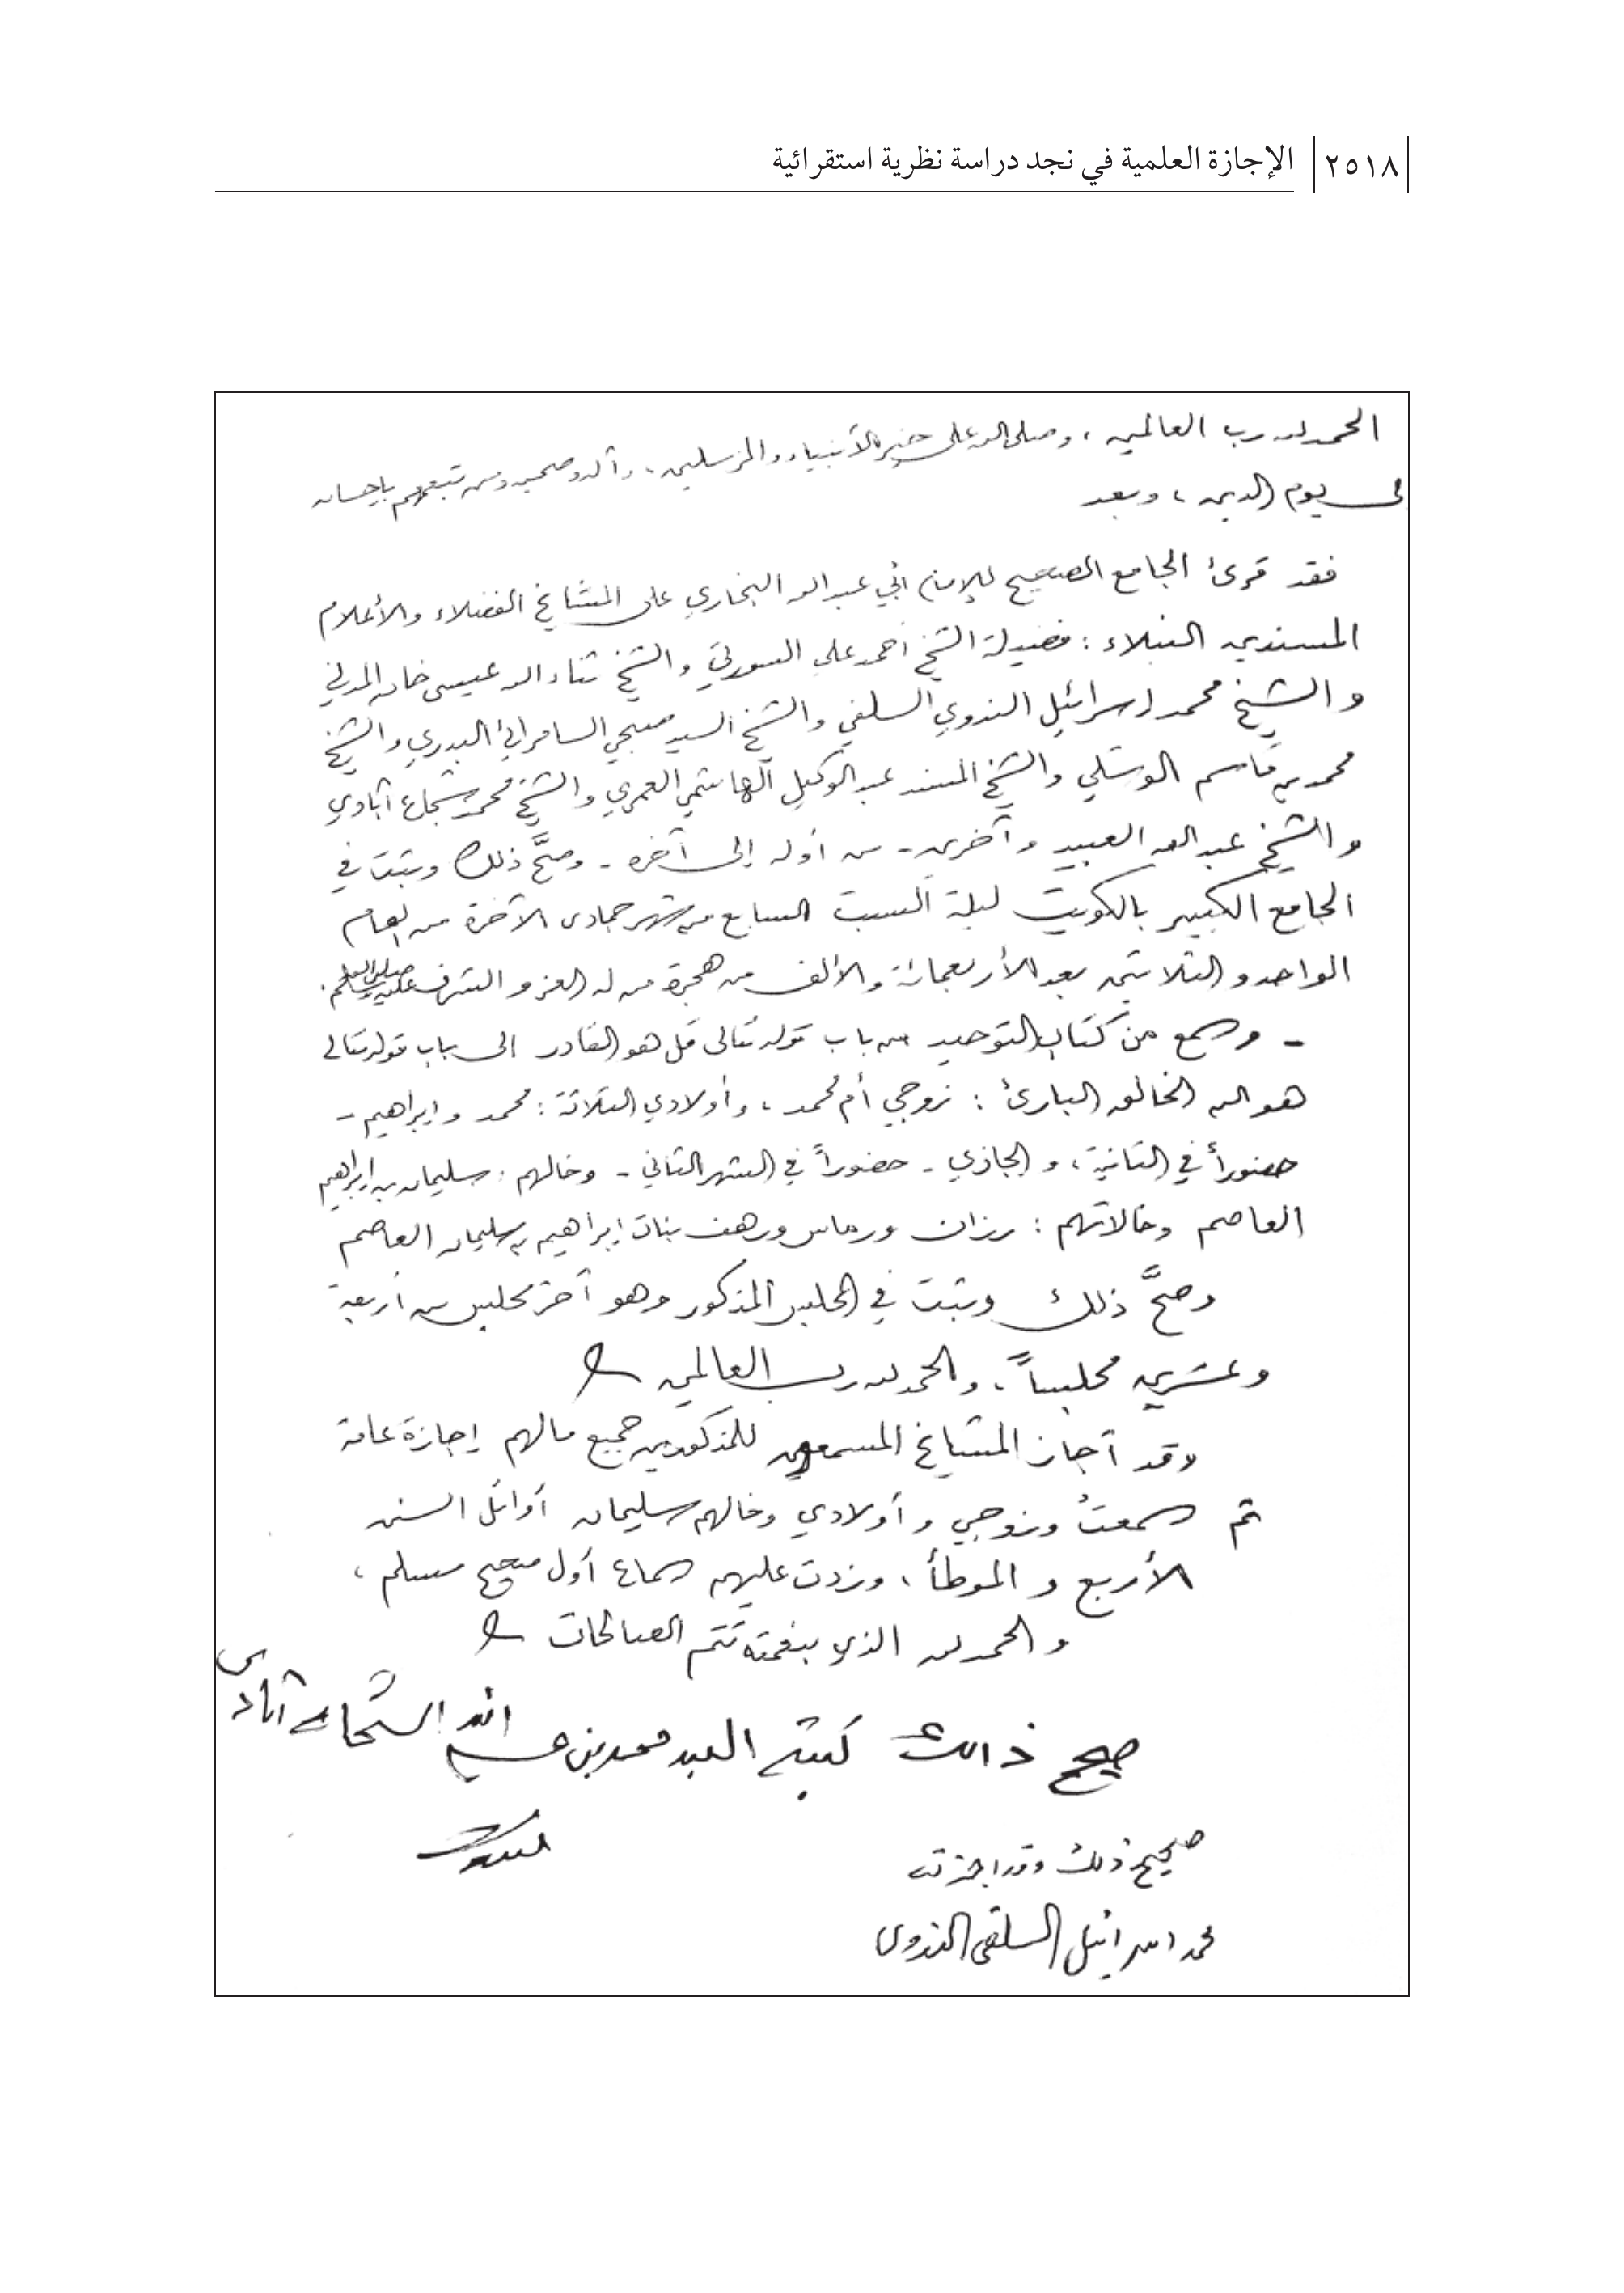 ٢٥١٨ الإجازة العلمية في نجد دراسة نظرية استقرائية
الحمد لله رب العالمين ، وصلى الله على خير الأنبياء والمرسلين ، وآله وصحبه ومن تبعهم بإحسان
إلى يوم الدين ، وبعد
فقد قرئ الجامع الصحيح للإمام أبي عبد الله البخاري على المشايخ الفضلاء والأعلام
المسندين النبلاء : فضيلة الشيخ أحمد علي السورتي والشيخ ثناء الله عيسى خان المدني
والشيخ محمد إسرائيل الندوي السلفي والشيخ السيد صبحي السامرائي البدري والشيخ
محمد بن قاسم الوشلي والشيخ المسند عبد الوكيل الهاشمي العمري والشيخ محمد شجاع آبادي
والشيخ عبد الله العبيد وآخرين - من أوله إلى آخره - وصحَّ ذلك وثبت في
الجامع الكبير بالكويت ليلة السبت السابع من شهر جمادى الآخرة من العام
الواحد والثلاثين بعد الأربعمائة والألف من هجرة من له العز والشرف صلى الله عليه وسلم .
- وسمع من كتاب التوحيد من باب قوله تعالى قل هو القادر إلى باب قوله تعالى
هو الله الخالق البارئ : زوجي أم محمد ، وأولادي الثلاثة : محمد وإبراهيم -
حضوراً في الثانية ، والجازي - حضوراً في الشهر الثاني - وخالهم : سليمان بن إبراهيم
العاصم وخالاتهم : رزان ورماس ورهف بنات إبراهيم بن سليمان العاصم
وصحَّ ذلك وثبت في المجلس المذكور وهو آخر مجلس من أربعة
وعشرين مجلساً ، والحمد لله رب العالمين
وقد أجاز المشايخ المسمعين للمذكورين جميع مالهم إجازة عامة
ثم سمعتُ وزوجي وأولادي وخالهم سليمان أوائل السنن
الأربع والموطأ ، وزدت عليهم سماع أول صحيح مسلم ،
والحمد لله الذي بنعمته تتم الصالحات
صحيح ذالك كتبه العبد محمد بن الله الشجاع آبادى
صحيح ذلك وقد اجزته
محمد اسرائيل السلفى الندوى